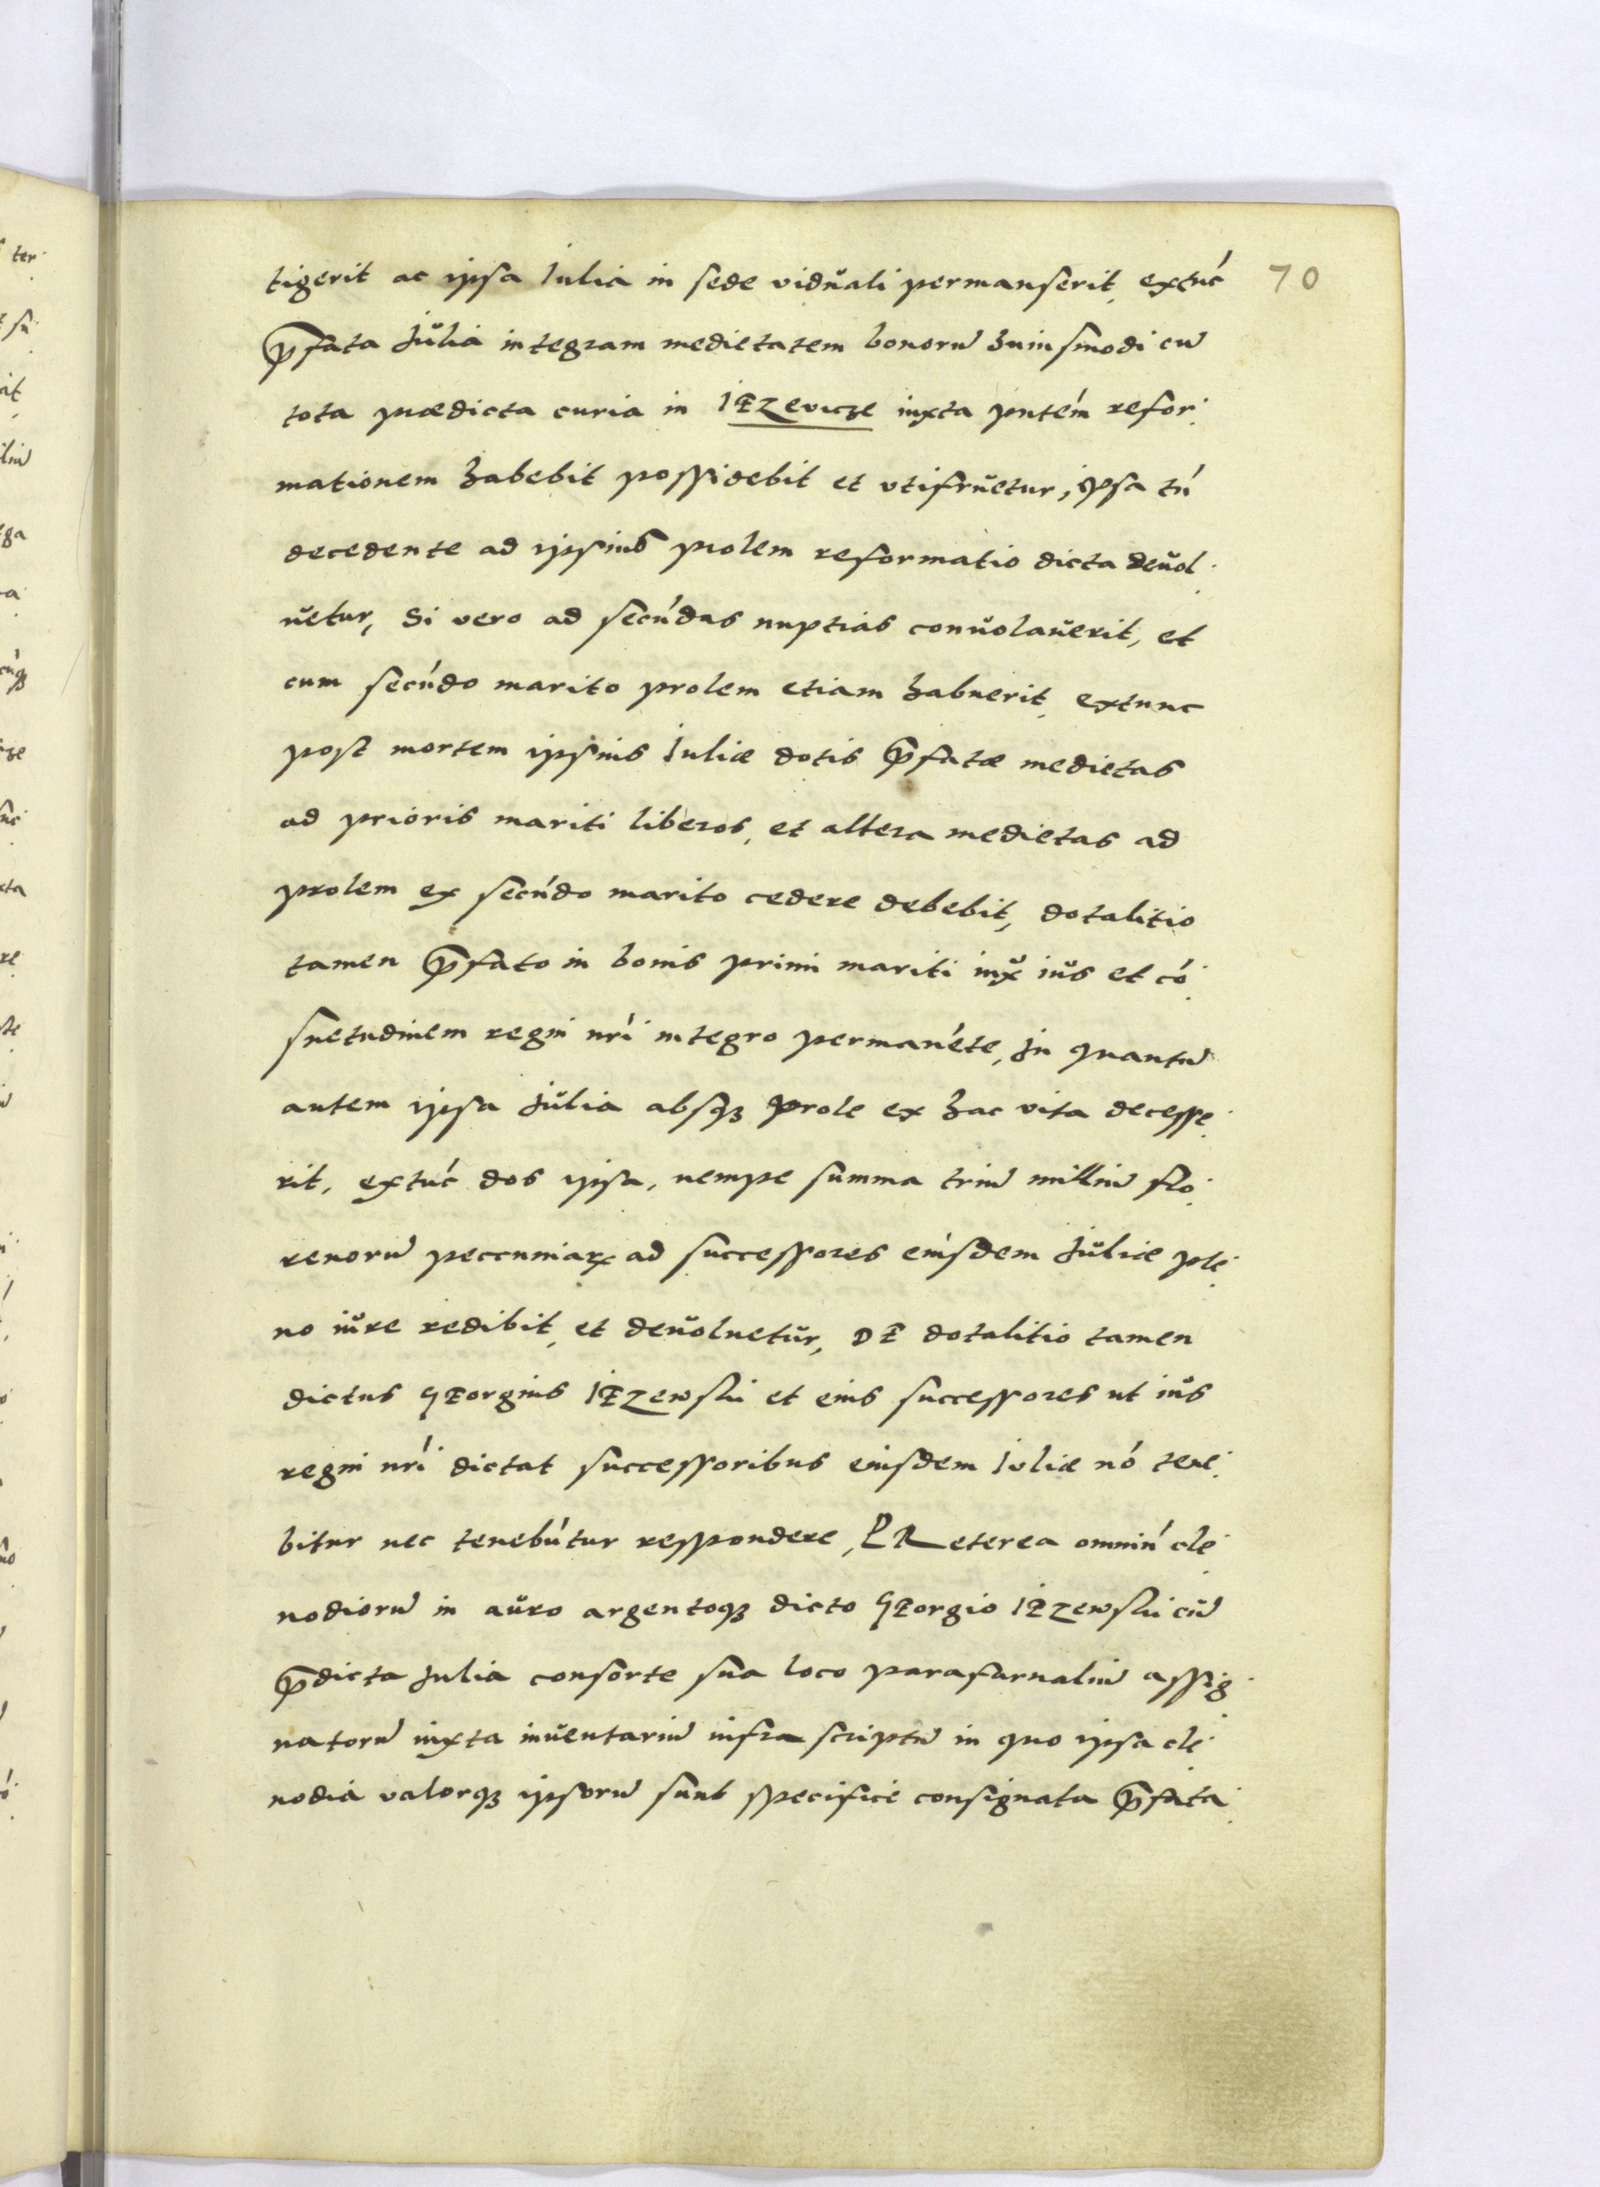 tigerit ac ipsa Iulia in sede viduali permanserit, extūc 70
p̄fata Julia integram medietatem bonorū huiusmodi cū
tota prædicta curia in IEzevicze iuxta pn̄tem refor
mationem habebit possidebit et vtifruetur, ipsa tn̄
decedente ad ipsius prolem reformatio dicta deuol
uetur, Si vero ad secūdas nuptias conuolauerit, et
cum secūdo marito prolem etiam habuerit, extunc
post mortem ipsius Iuliæ dotis p̄fatæ medietas
ad prioris mariti liberos, et altera medietas ad
prolem ex secūdo marito cedere debebit, dotalitio
tamen p̄fato in bonis primi mariti iux̄ ius et cō
suetudinem regni nr̄i integro permanēte, In quantū
autem ipsa Julia absq̨ prole ex hac vita decesse
rit, extūc dos ipsa, nempe summa triū milliū flo
renorū peccuniarꝝ ad successores eiusdem Juliæ ple
no iure redibit, et deuoluetur, DE dotalitio tamen
dictus GEorgius IEzewski et eius successores ut ius
regni nr̄i dictat successoribus eiusdem Iuliæ nō tene
bitur nec tenebūtur respondere, PReterea omniū cle
nodiorū in auro argentoq̨ dicto GEorgio IEzewski cū
p̄dicta Julia consorte sua loco parafarnaliū assig
natorū iuxta inuentariū infra scriptū in quo ipsa cle
nodia valorq̨ ipsorū sunt specifice consignata p̄fata